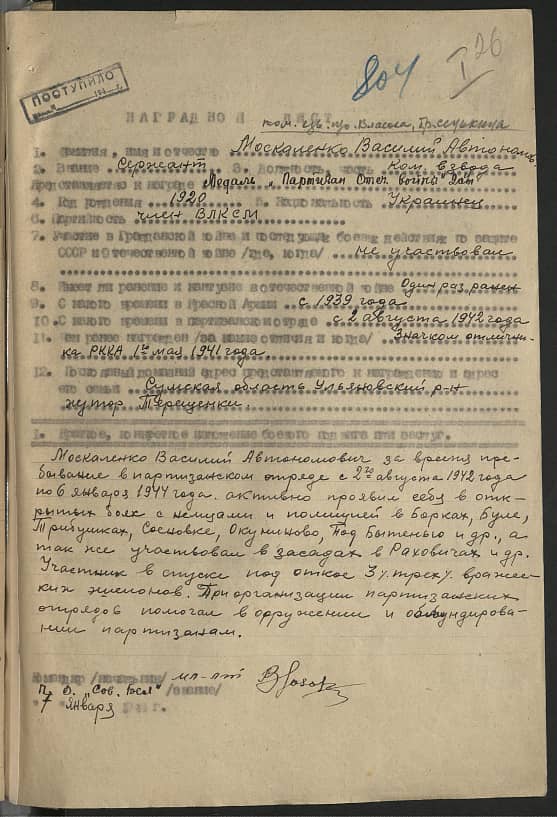 26
804 I
ПОСТУПИЛО
НАГРАДНОЙ ЛИСТ
1. Фамилия, имя и отчество Москаленко Василий Автономов.
2. Звание Сержант 3. Должность, часть Ком. взвода
Представляется к награде Медаль "Партизан Отеч. войны"
4. Год рождения 1920 5. Национальность Украинец
6. Партийность член ВЛКСМ
7. Участие в Гражданской войне и последующих боевых действиях по защите
СССР и Отечественной войне /где, когда/ Не участвовал
8. Имеет ли ранения и контузии в отечественной войне Один раз ранен
9. С какого времени в Красной Армии с 1939 года
10. С какого времени в партизанском отряде с 2 августа 1942 года
11. Чем ранее награжден /за какие отличия и когда/ Значком отлични-
ка РККА 1го мая 1941 года.
12. Постоянный домашний адрес представляемого к награждению и адрес
его семьи Сумская область Ульяновский р-н
хутор Терещенки.
I. Краткое, конкретное изложение боевого подвига или заслуг.
Москаленко Василий Автономович за время пре-
бывание в партизанском отряде с 2го августа 1942 года
по 6 января 1944 года. активно проявил себя в отк-
рытых боях с немцами и полицией в Борках, Буле,
Трибушках, Сосновке, Окуниново, Под Бытенью и др., а
так же участвовал в засадах в Раховичах и др.
Участник в спуске под откос 3х/трех/ вражес-
ких эшелонов. При организации партизанских
отрядов помогал в оружении и обмундирова-
нии партизанам.
Командир /начальник/ мл. л-т
П. О. "Сов. Бел" /звание/
7 Января